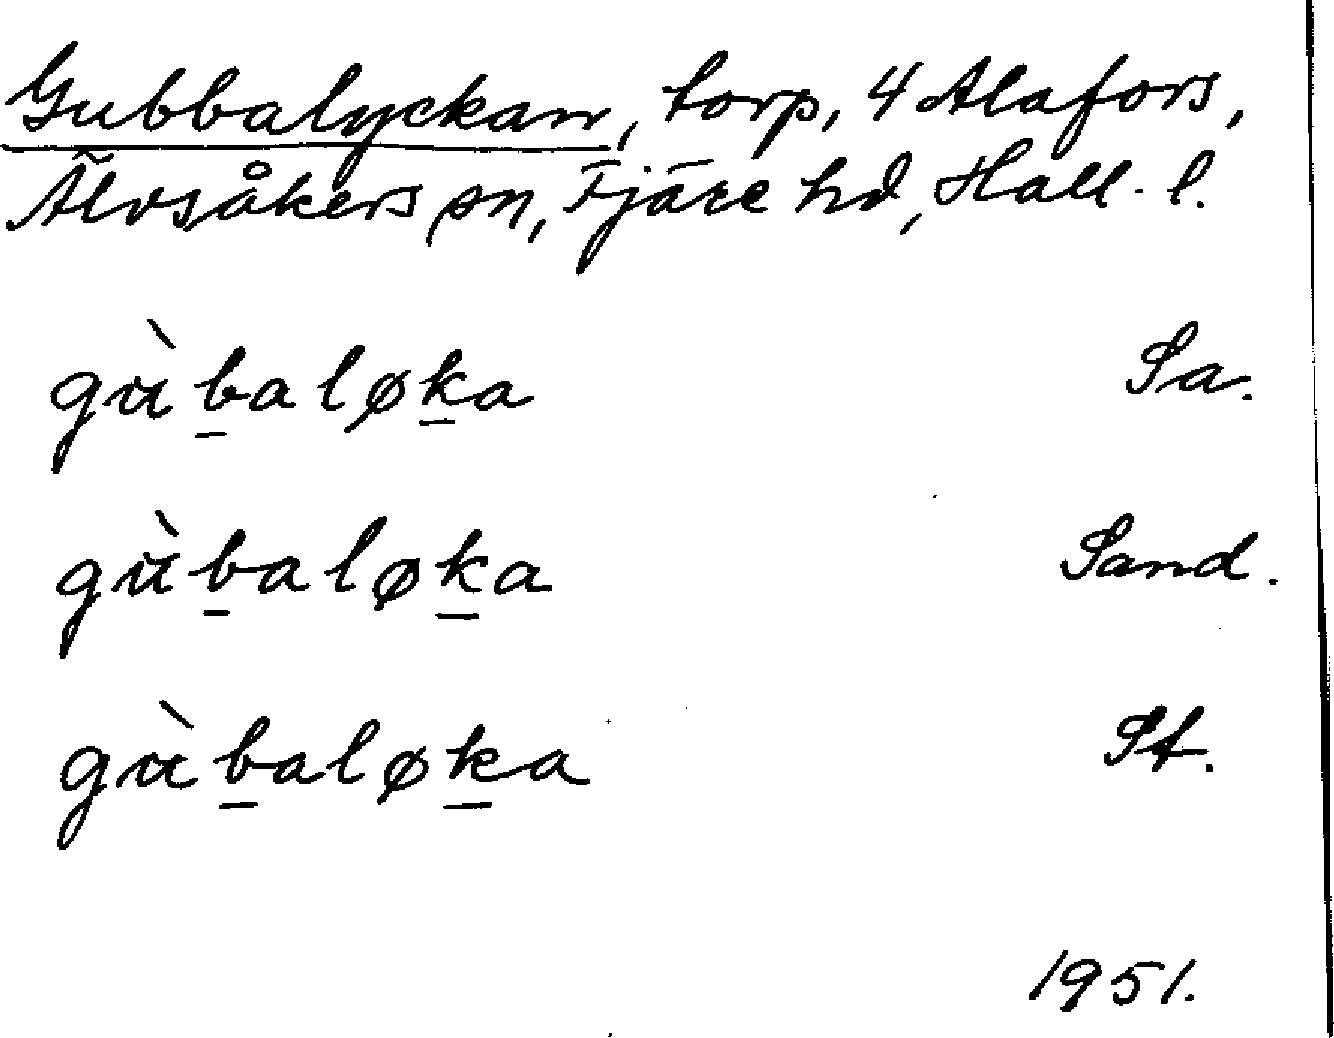 Gubbalyckan, torp, 4 Alafors,
Älvsåkers sn, Fjäre hd, Hall. l.
gùb̲aløk̲a Sa.
gùb̲aløk̲a Sand.
gùb̲aløk̲a St.
1951.